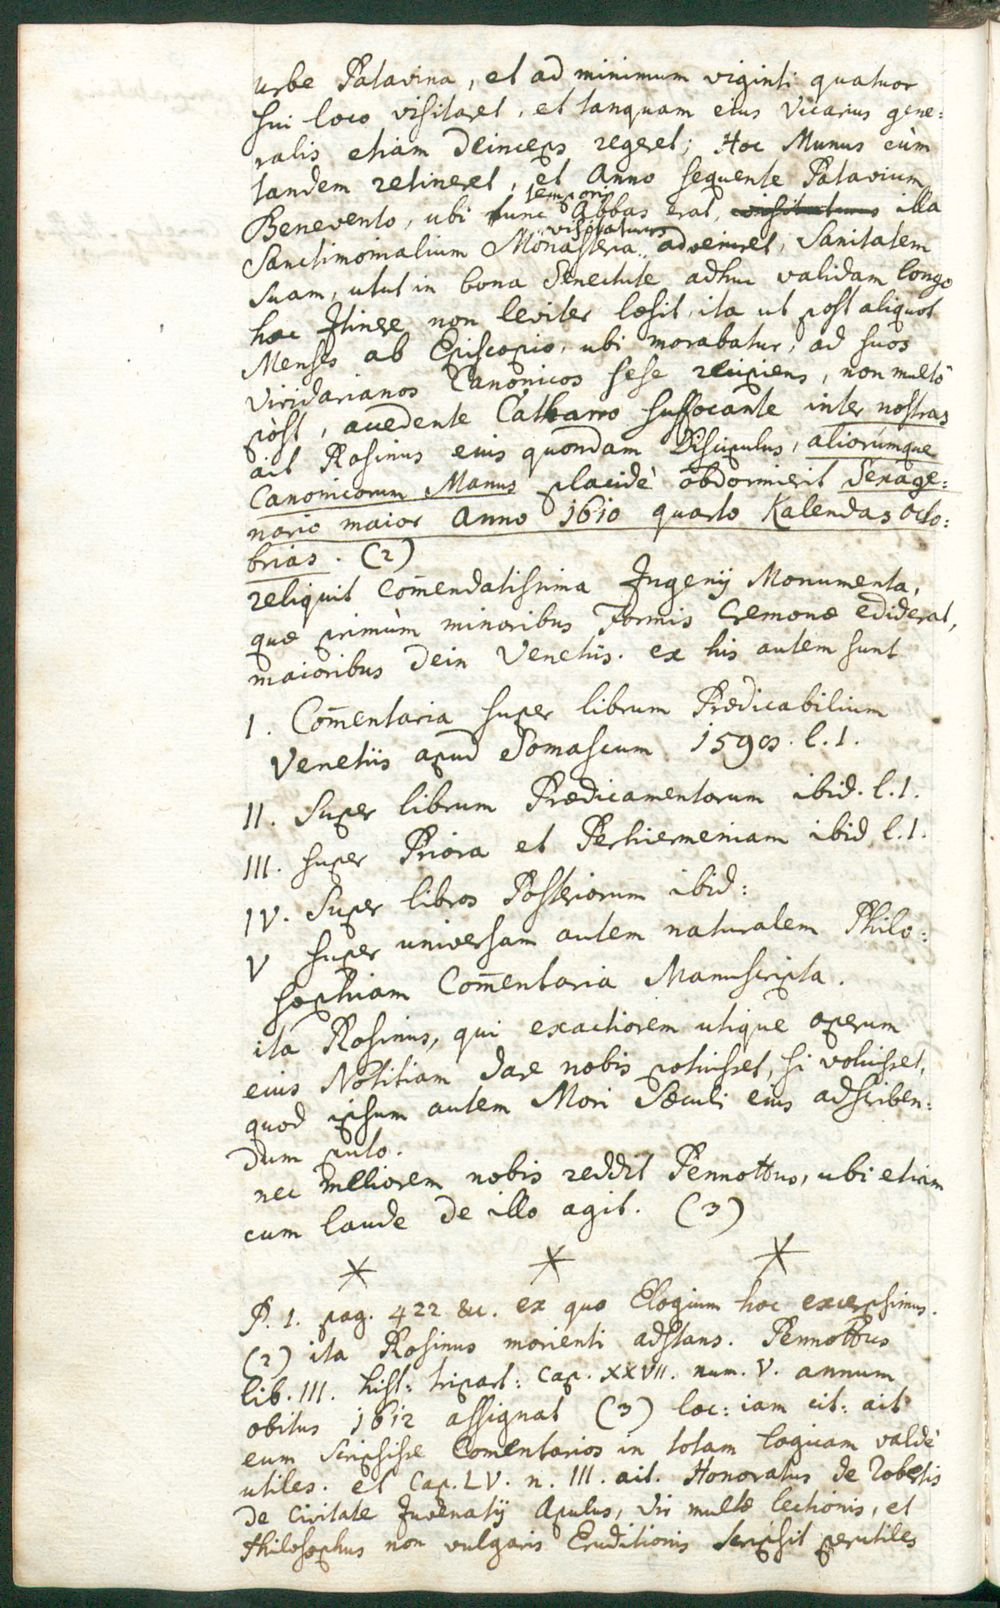 urbe Patavina, et ad minimum viginti quatuor
sui loco visitaret, et tanquam eius Vicarius gene:
ralis etiam deinceps regeret; Hoc Munus cùm
tandem retineret, et Anno sequente Patavium
Benevento, ubi tunc temporis Abbas erat, illa
Sanctimonialium Monasteria visitaturus adveniret, Sanitatem
suam, utut in bona Senectute adhuc validam longo
hoc Itinere non leviter læsit, ita ut post aliquot
Menses ab Episcopio, ubi morabatur, ad suos
Viridarianos Canonicos sese recipiens, non multò
pòst, accedente Catharro suffocante inter nostras
ait Rosinus eius quondam Discipulus, aliorumque
Canonicorum Manus placidè obdormierit Sexage:
nario maior Anno 1610 quarto Kalendas Octo:
brias. (2)
reliquit Com̄endatissima Ingenij Monumenta,
quæ primùm minoribus Formis Cremonæ ediderat,
maioribus dein Venetiis. ex his autem sunt
I. Com̄entaria super librum Prædicabilium
Venetiis apud Somascum 1590. l. 1.
II. Super librum Prædicamentorum ibid. l. 1.
III. super Priora et Perhiermeniam ibid. l. 1.
IV. Super libros Posteriorum ibid:
V super universam autem naturalem Philo:
sophiam Com̄entaria Manuscripta.
ita Rosinus, qui exactiorem utique operum
eius Notitiam dare nobis potuisset, si voluisset,
quod ipsum autem Mori Sæculi eius adscriben:
dum puto.
nec meliorem nobis reddit Pennottus, ubi etiam
cum laude de illo agit. (3)
* * *
P. 1. pag. 422 &c. ex quo Elogium hoc excerpsimus.
(2) ita Rosinus morienti adstans. Pennottus
lib. III. hist: tripart: cap. XXVII. num. V. annum
obitus 1612 assignat (3) loc: iam cit: ait
eum scripsisse Comentarios in totam logicam valdè
utiles. et Cap. LV. n. III. ait. Honoratus de Robertis
de Civitate Juvenatij Apulus, Vir multæ lectionis, et
Philosophus non vulgaris Eruditionis scripsit perutiles